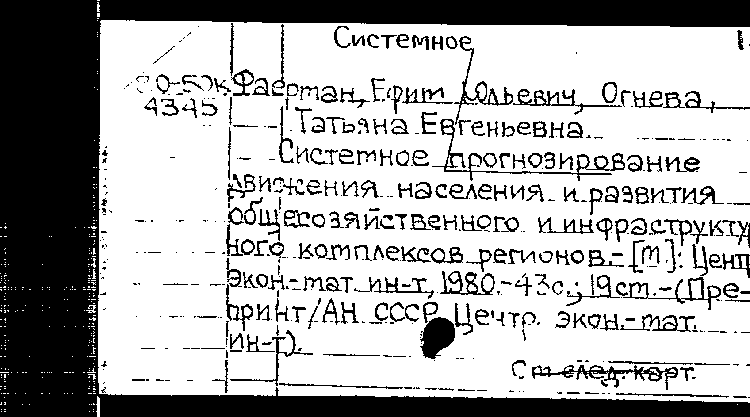 Системное
80-50к Фаерман, Ефим Юльевич, Огнева,
4345 Татьяна Евгеньевна.
Системное прогнозирование
движения населения и развития
общехозяйственного и инфраструктур
ного комплексов регионов.-[М.]: Центр
экон.-мат. ин-т, 1980.-43с.; 19см.-(Пре-
принт/АН СССР Центр. экон.-мат.
ин-т).
См след карт.